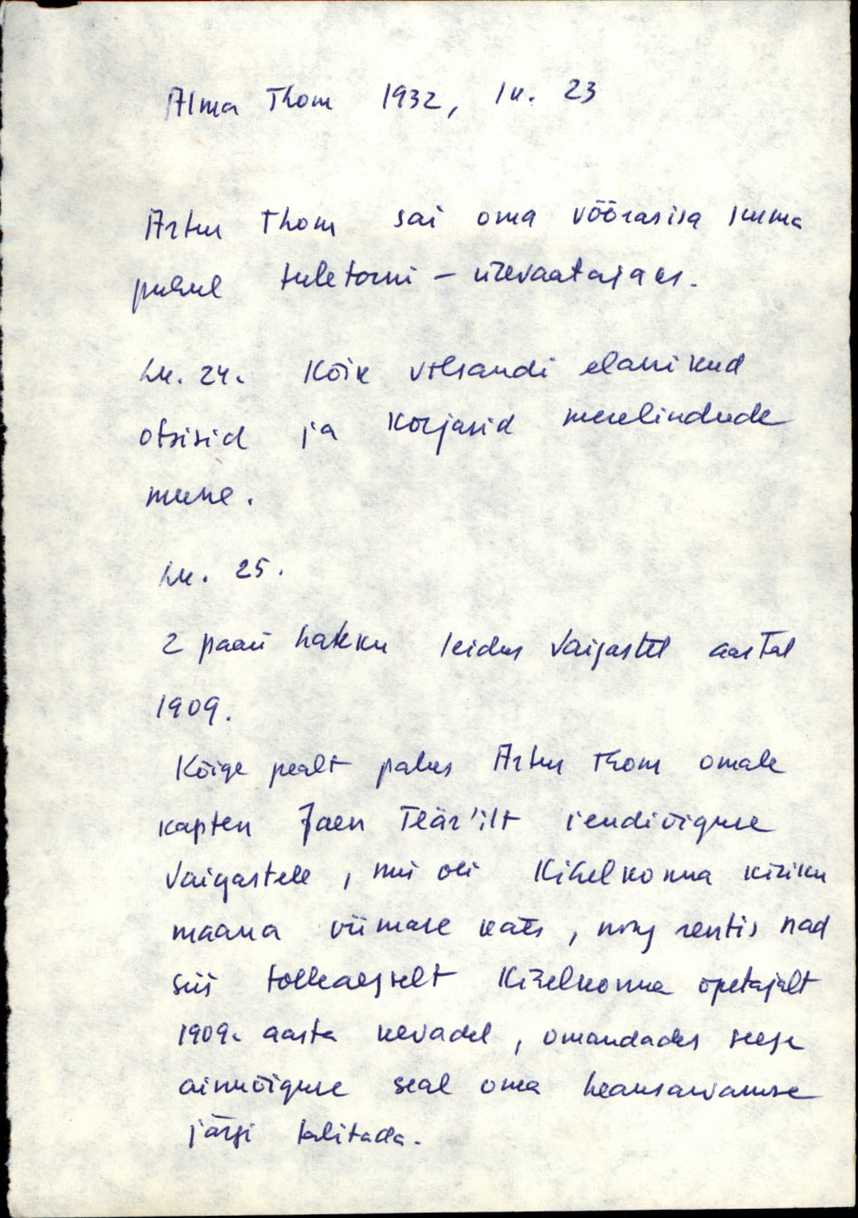 Alma Thom 1932, lk. 23
Artur Thom sai oma võõrasisa surma
puhul tuletorni-ülevaatajaks.
Lk. 24. Kõik Vilsandi elanikud
otsisid ja korjasid merelindude
mune.
Lk. 25.
2 paari hakku leidus Vaigastel aastal
1909.
Kõige pealt palus Artur Thom omale
kapten Jaen Teär'ilt rendiõiguse
Vaigastele, mis oli Kihelkonna kiriku
maana viimase käes, ning rentis nad
siis tolleaegselt Kihelkonna õpetajalt
1909. aasta kevadel, omandades seega
ainuõiguse seal oma heaksarvamise
järgi talitada.